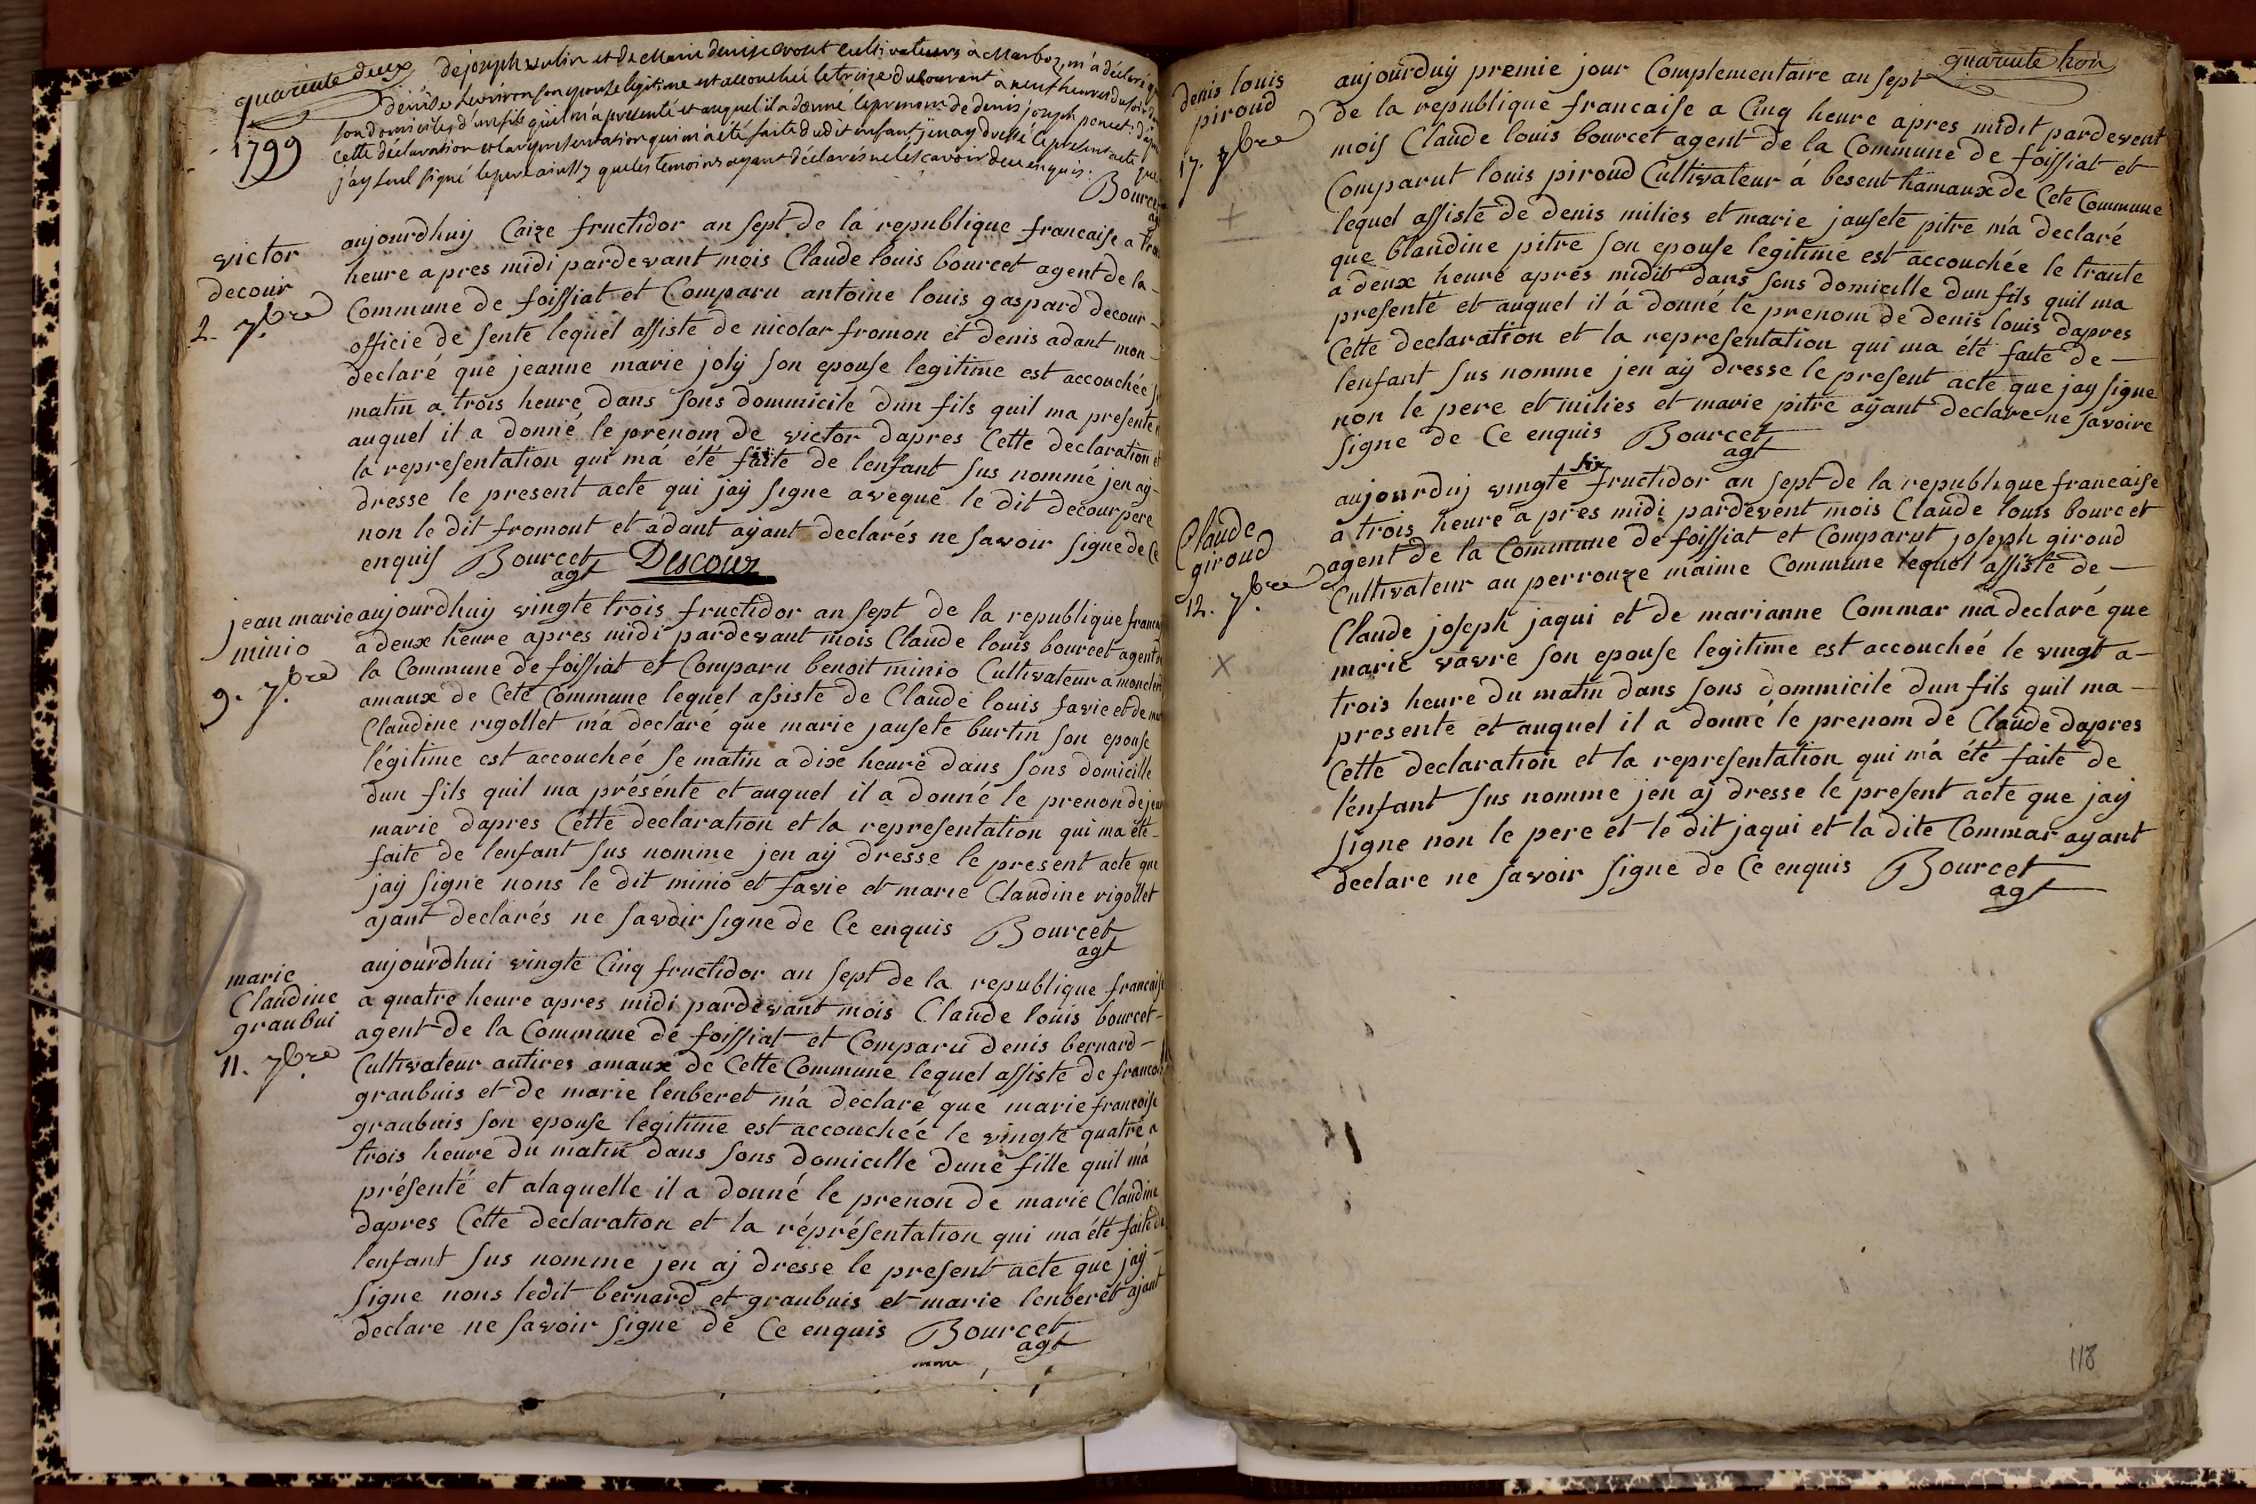 quarente deux
1799
de joseph vulin et de Marie denise cultivateurs à Marboz, m'a déclaré
denise son epouse legitime est accouchée le treize du courant à neuf heures du soir
son domicile, d'un fils qu'il m'a presenté et auquel il a donné le prenom de denis joseph
cette déclaration et la representation qui m'a été faite dudit enfant j'en ay dressé le present acte
j'ay seul signé le pere ainssy que les temoins ayant déclarés ne le scavoir de ce enquis.
Bourcet
victor
decour
2. 7bre
aujourdhuij Caize fructidor an sept de la republique francaise a trois
heure apres midi pardevant mois Claude louis bourcet agent de la
Commune de foissiat et Comparu antoine louis gaspard decour
officie de sente lequel assiste de nicolas fromon et denis adant mon
declaré que jeanne marie joly son epouse legitime est accouchée
matin a trois heure dans sons dommicile dun fils quil ma presente
auquel il a donné le prenom de victor dapres Cette declaration et
la representation qui má été faite de lenfant sus nommé jen aÿ
dresse le present acte qui jaÿ signe aveque le dit decour pere
non le dit fromont et adant aÿant declarés ne savoir signe de Ce
enquis Bourcet agt Descour
jean marie
minio
9. 7bre
aujourdhuij vingte trois fructidor an sept de la republique
a deux heure apres midi pardevant mois Claude louis bourcet agent de
la Commune de foissiat et Comparu benoit minio Cultivateur a
amaux de Cete Commune lequel assiste de Claude louis favie et de
Claudine rigollet má declaré que marie jausete burtin son epouse
légitime est accoucheé se matin a dix heure dans sons domicille
dun fils quil ma présénte et auquel il a donné le prenon de jean
marie dapres Cette declaration et la representation qui ma été
faite de lenfant sus nomme jen aÿ dresse le present acte que
jaÿ signe nons le dit minio et favie et marie Claudine rigollet
ajant declarés ne savoir signe de Ce enquis Bourcet
agt
marie
Claudine
graubui
11. 7bre
aujourdhui vingte Cinq fructidor an sept de la republique francaise
a quatre heure apres midi pardevant mois Claude louis bourcet
agent de la Commune de foissiat et Comparu denis bernard
Cultivateur autires amaux de Cette Commune lequel assiste de francois
graubuis et de marie lenberet má déclaré que marie francoise
graubuis son epouse legitime est accouchéé le vingte quatre a
trois heure du matin dans sons domicille dune fille quil má
présenté et alaquelle il a donné le prenon de marie Claudine
dapres Cette declaration et la réprésentation qui ma été faite de
lenfant sus nomme jen aj dresse le present acte que jaÿ
signe nons ledit bernard et graubuis et marie lenberet ajant
declare ne savoir signe de Ce enquis Bourcet
agt
quarente troi
denis louis
piroud
17. 7bre
aujourduÿ premie jour Complementaire an sept
de la republique francaise a Cinq heure apres midit pardevent
mois Claude louis bourcet agent de la Commune de foissiat et
Comparut louis piroud Cultivateur á besent hamaux de Cete Commune
lequel assiste de denis milies et marie jausete pitre má declaré
que blandine pitre son epouse legitime est accouchée le trante
a deux heure aprés midit dans sons domicille dun fils quil ma
presenté et auquel il á donné le prenom de denis louis dapres
Cette declaration et la representation qui ma été faite de
lenfant sus nomme jen aÿ dresse le present acte que jay signe
non le pere et milies et marie pitre aÿant declare ne savoire
signe de Ce enquis Bourcet
agt
Claude
giroud
12. 7bre
aujourduj vingte six fructidor an sept de la republique francaise
a trois heure apres midi pardevent mois Claude louis bourcet
agent de la Commune de foissiat et Comparut joseph giroud
Cultivateur au perrouze maime Commune lequel assiste de
Claude joseph jaqui et de marianne Commar ma declaré que
marie vavre son epouse legitime est accoucheé le vingt a
trois heure du matin dans sons dommicile dun fils quil ma
presente et auquel il a donné le prenom de Claude dapres
Cette declaration et la representation qui má été faite de
lénfant sus nomme jen aj dresse le present acte que jaÿ
signe non le pere et le dit jaqui et la dite Commar ayant
declare ne savoir signe de Ce enquis Bourcet
agt
118